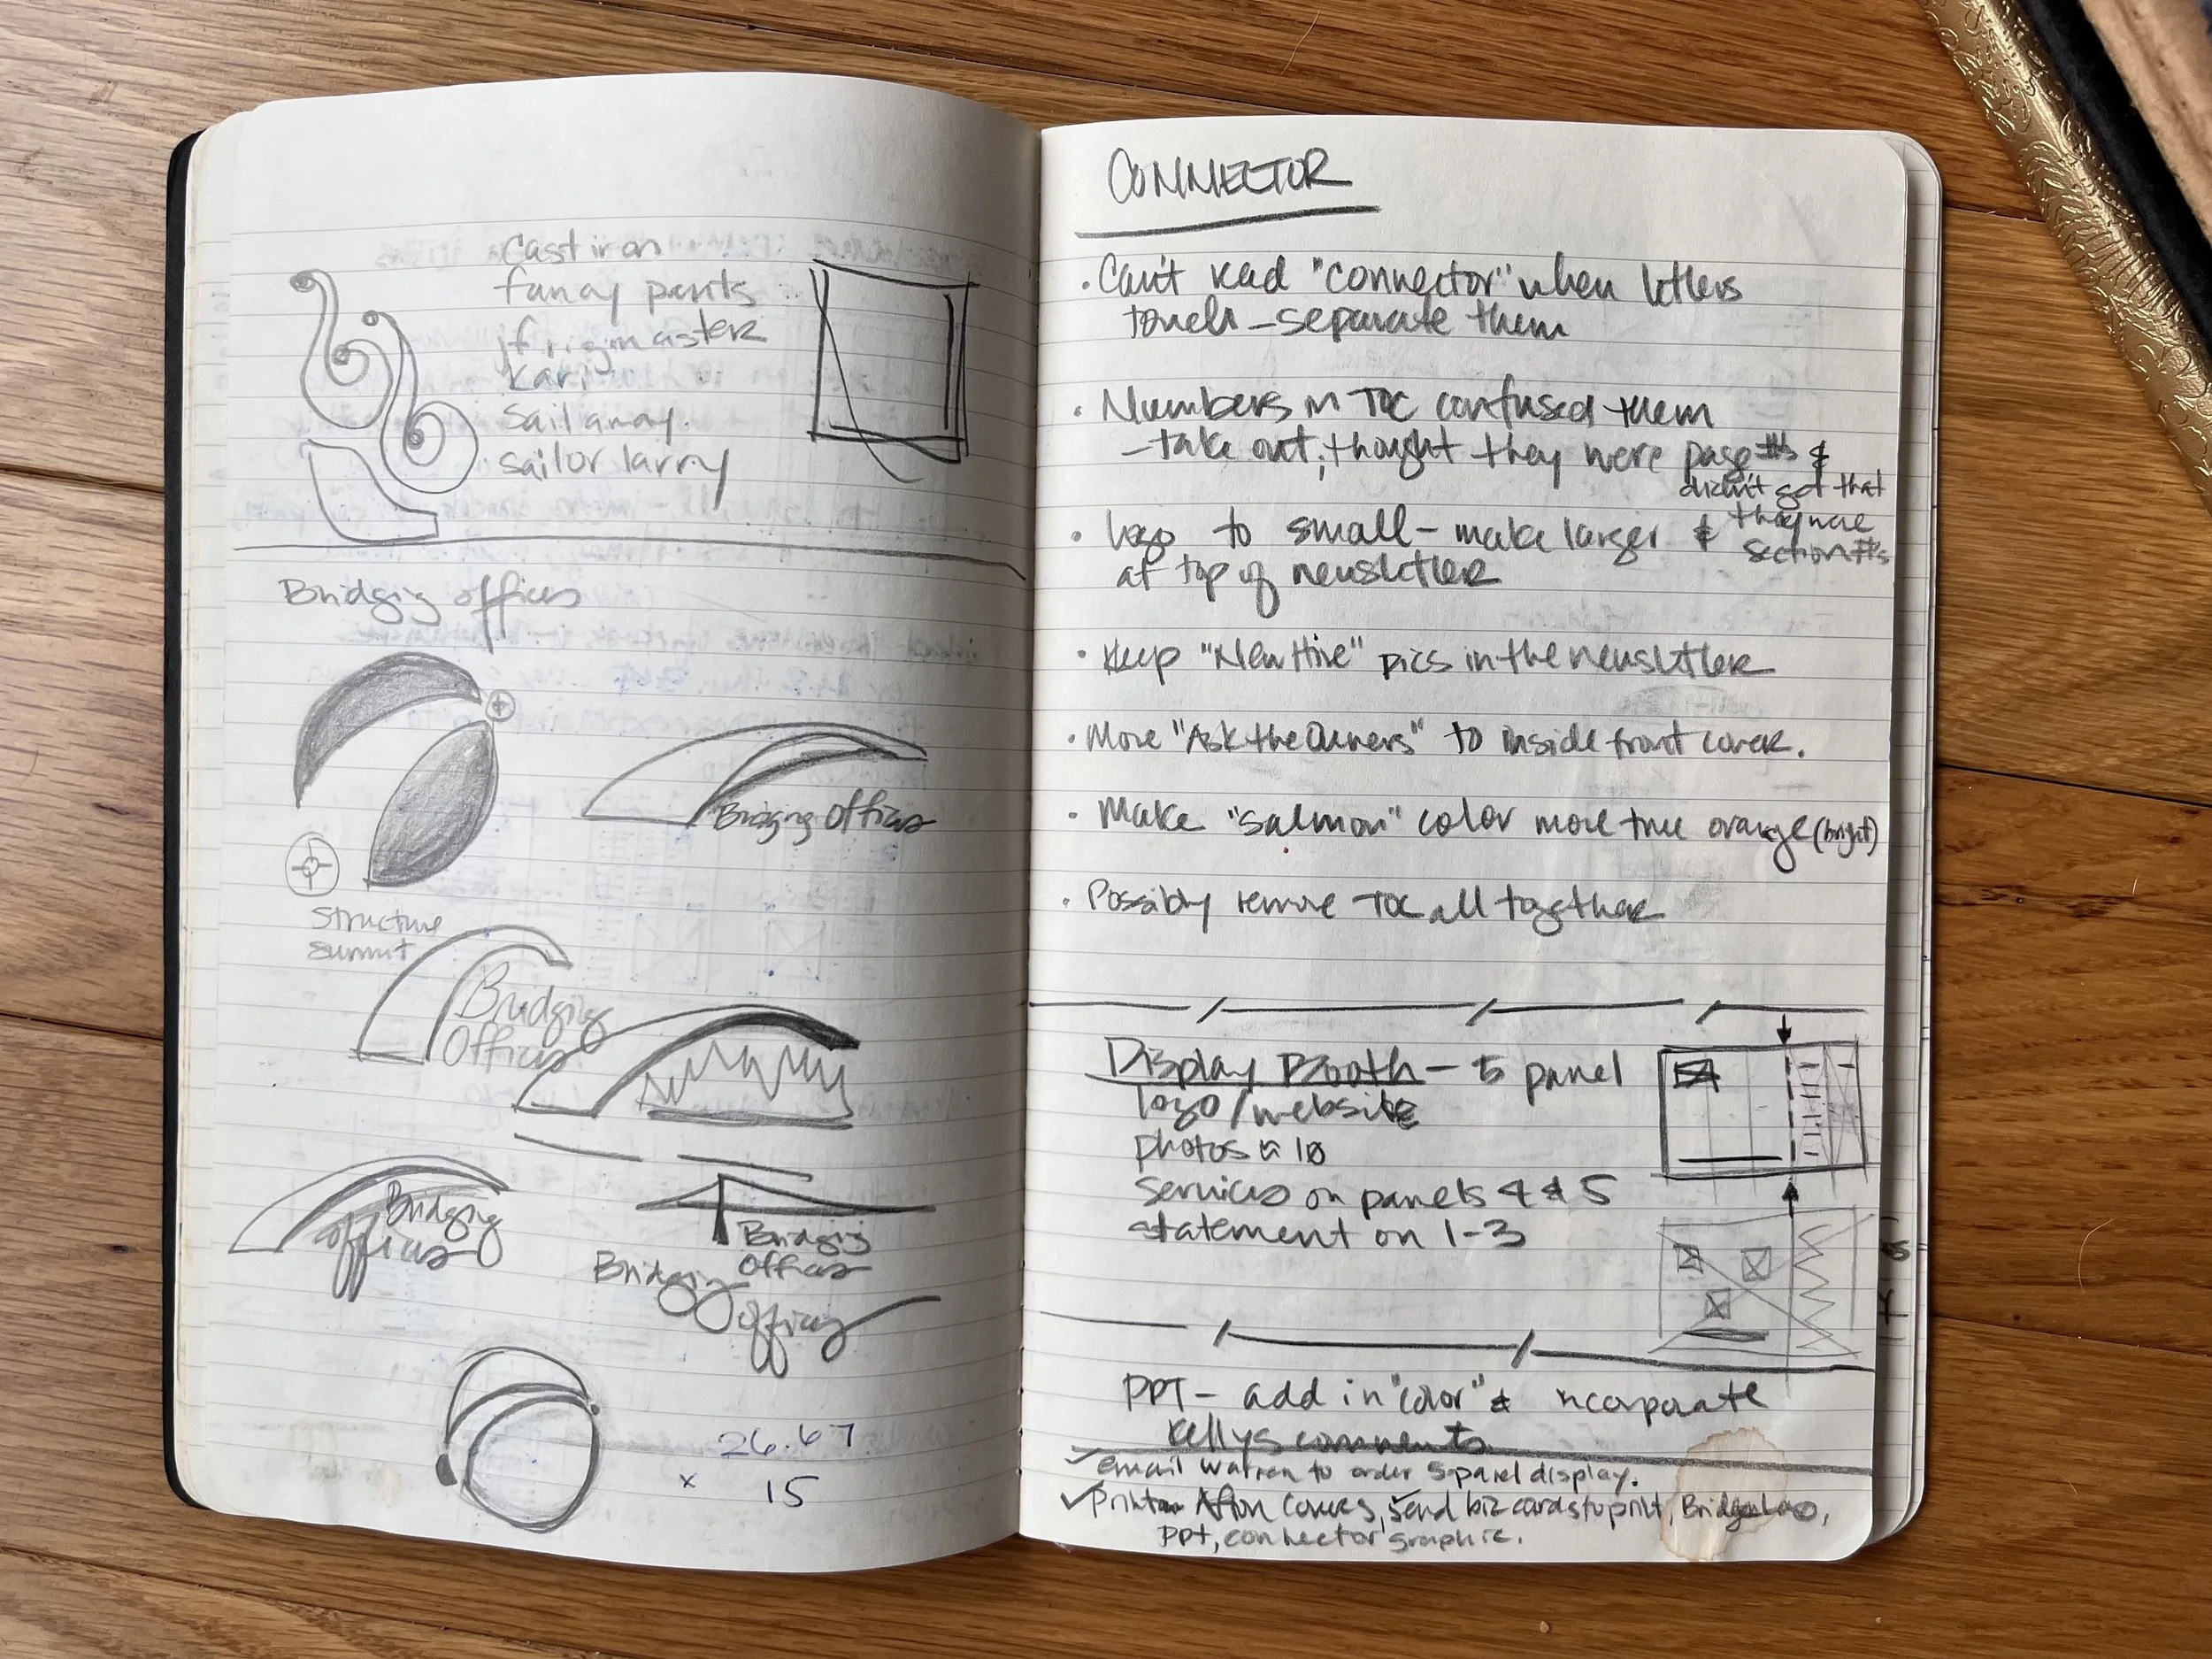 Cast iron
fancy pants
frigmaster
Kari
Sail away
Sailor larry
Bridging offices
Bridging Offices
Structure
summit
Bridging
Offices
Bridging
offices
Bridging
Offices
Bridging
offices
26.67
x 15
CONNECTOR
• Can't read "connector" when letters
touch – separate them
• Numbers in TOC confused them
– take out; thought they were page #s &
didn't get that
they were
section #s
• logo to small – make larger &
at top of newsletter
• Keep "New Hire" pics in the newsletter
• Move "Ask the Owners" to inside front cover.
• Make "salmon" color more true orange (bright)
• Possibly remove TOC all together
Display Booth – 5 panel
logo/website
photos 10
services on panels 4 & 5
statement on 1-3
PPT – add in "color" & incorporate
Kellys comments
✓ email Warren to order 5 panel display.
✓ Afton Covers, ✓ send biz cards to print,
PPT, connector graphic.